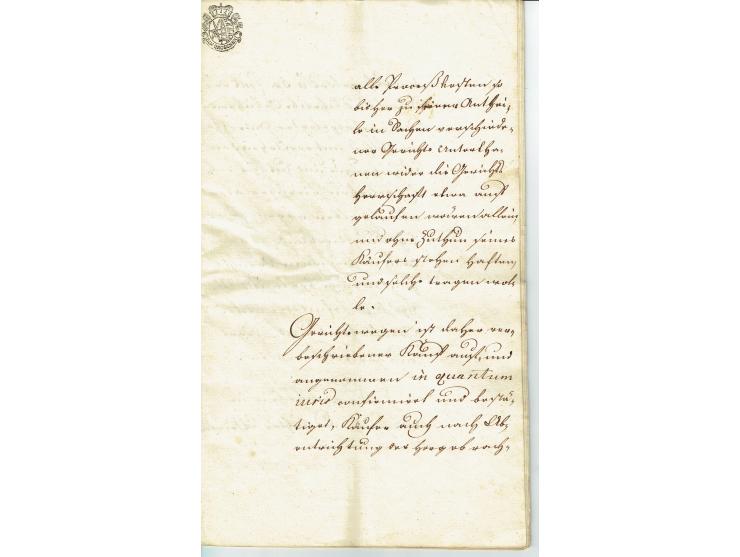 alle Proceßkosten so
bisher zu ihrem Anthei-
le in Sachen verschiede-
ner Gerichts Untertha-
nen wider die Gerichts
Herrschafft etwa auff
gelaufen wären allein
und ohne Zuthun seines
Käufers stehen haften
und solche tragen wol-
le.
Gerichtswegen ist daher ver-
beschriebener Kauf auf und
angenommen in quantum
iuris confirmiret und bestä-
tiget, Käufer auch nach Ab-
entrichtung der hergebrach-